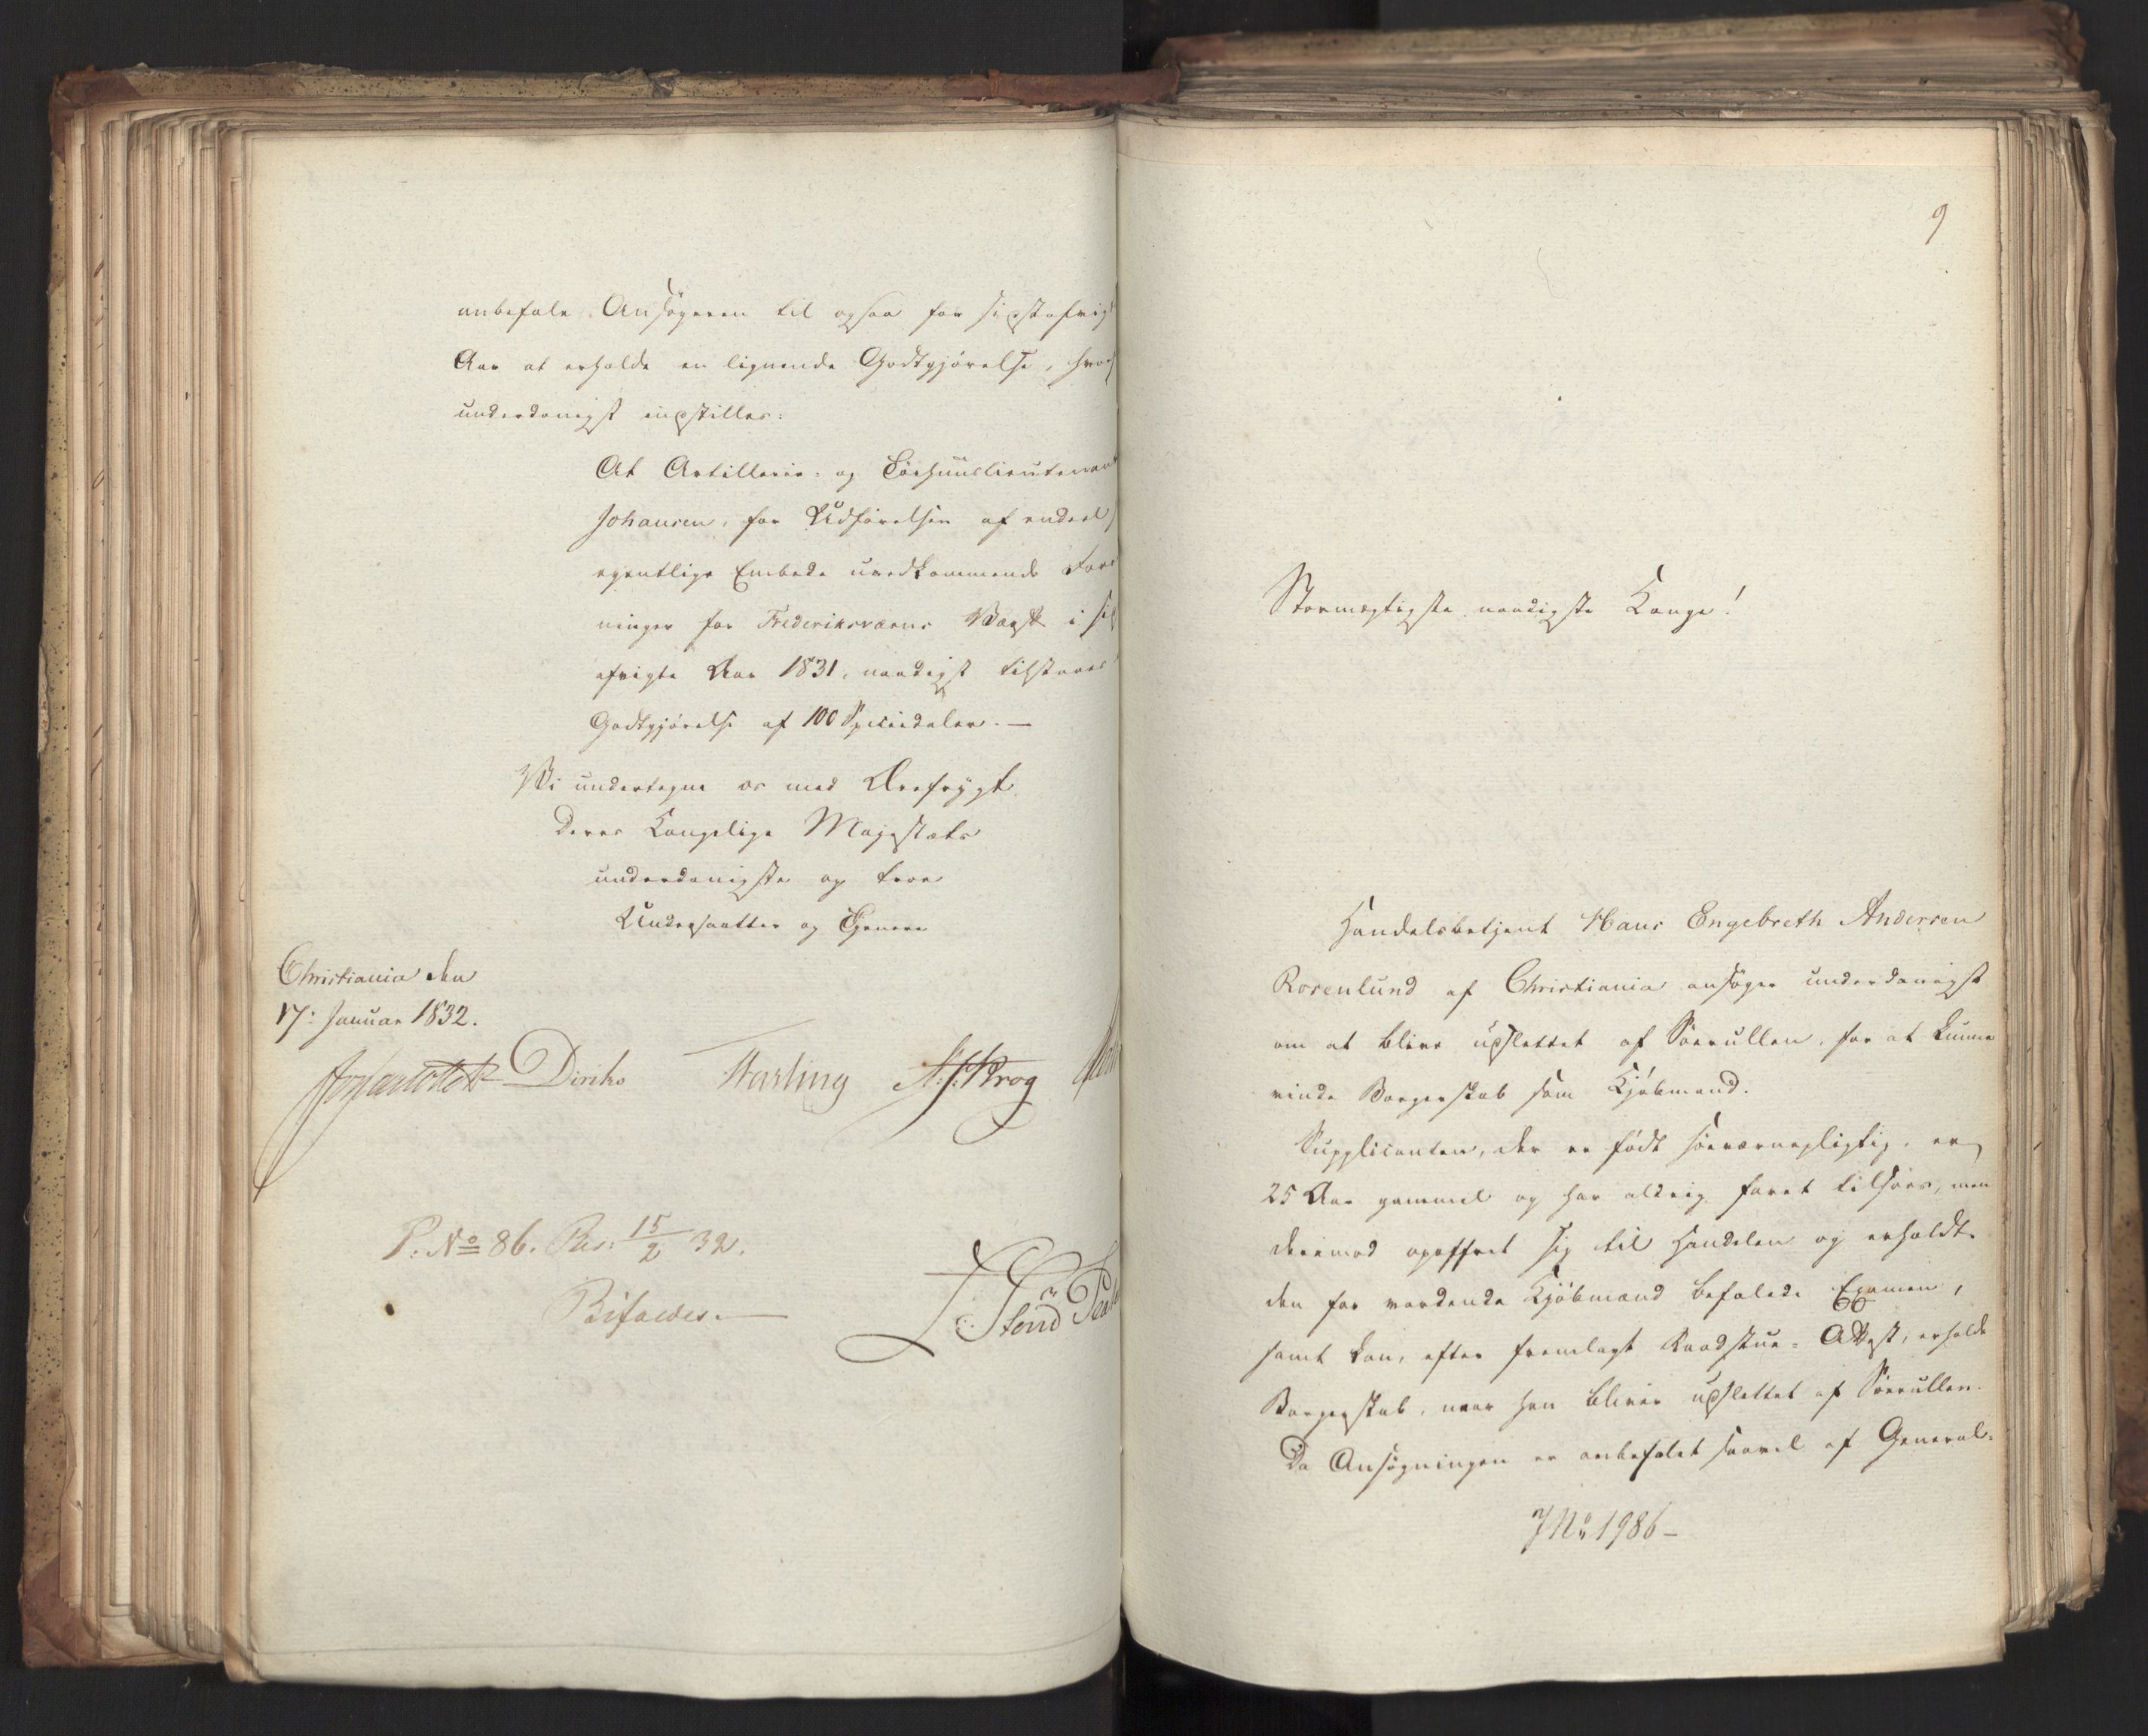 anbefale Ansøgeren til ogsaa for sidstafvigt
Aar at erholde en lignende Godtgjørelse, hvor
underdanigst indstilles:
At Artillerie- og Tøihuuslieutenant
Johansen, for Udførelsen af endeel
egentlige Embede uvedkommende For
ninger for Frederiksværns Værft i sidst
afvigte Aar 1831, naadigst tilstaaes
Godtgjørelse af 100 Speciedaler. —
Vi undertegne os med Ærefrygt
Deres Kongelige Majestæts
underdanigste og troe
Undersaatter og Tjenere
Christiania den
17: Januar 1832.
Diriks
A. S. Krog
P. No 86. Res: 15/2 32.
Bifaldes. —
9
Stormægtigste naadigste Konge!
Handelsbetjent Hans Engebreth Andersen
Rosenlund af Christiania ansøger underdanigst
om at blive udslettet af Søerullen, for at kunne
vinde Borgerskab som Kjøbmand.
Supplicanten, der er født søeværnepligtig, er
25 Aar gammel og har aldrig faret tilsøes, men
derimod opoffret sig til Handelen og erholdt
den for vordende Kjøbmænd befalede Examen,
samt kan, efter fremlagt Raadstue-Attest, erholde
Borgerskab, naar han bliver udslettet af Søerullen.
Da Ansøgningen er anbefalet saavel af General-
JNo 1986 –